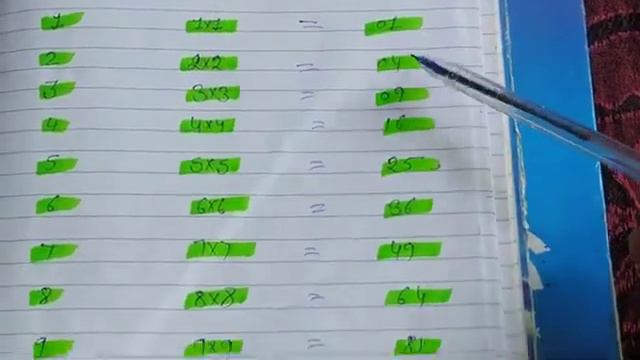 1 1x1 = 01
2 2x2 = 04
3 3x3 = 09
4 4x4 = 16
5 5x5 = 25
6 6x6 = 36
7 7x7 = 49
8 8x8 = 64
9 = 81